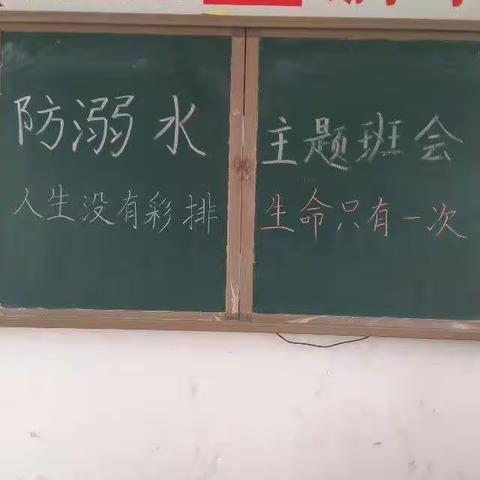 防溺水 主题班会
人生没有彩排 生命只有一次